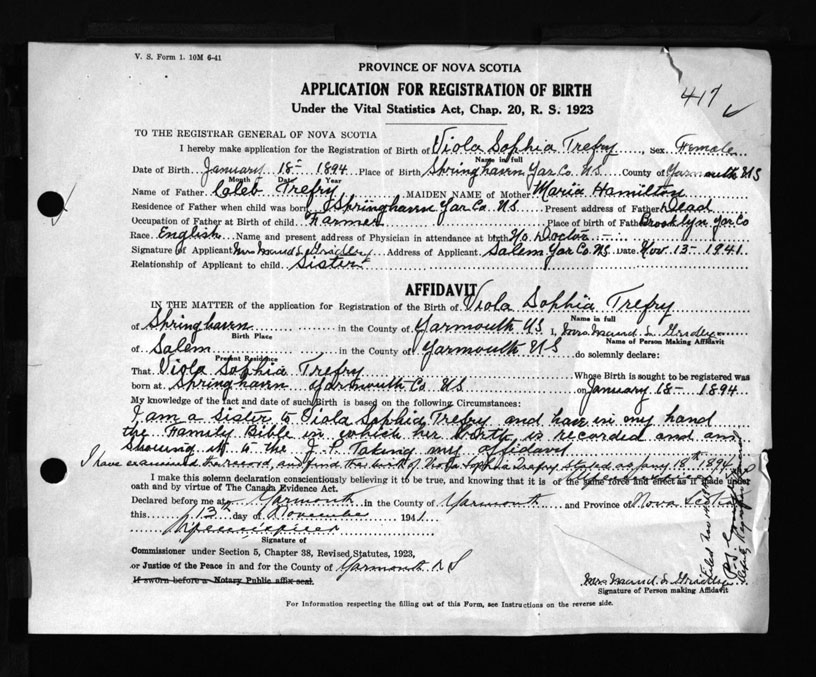 V. S. Form 1. 10M 6-41
PROVINCE OF NOVA SCOTIA
APPLICATION FOR REGISTRATION OF BIRTH
417 ✓
Under the Vital Statistics Act, Chap. 20, R. S. 1923
TO THE REGISTRAR GENERAL OF NOVA SCOTIA
I hereby make application for the Registration of Birth of Viola Sophia Trefry, Sex Female
Name in full
Date of Birth January 18- 1894 Place of Birth Springhaven Yar. Co. N.S County of Yarmouth N.S
Month Date Year
Name of Father Caleb Trefry MAIDEN NAME of Mother Maria Hamilton
Residence of Father when child was born Springhaven Yar. Co. N.S Present address of Father Dead
Occupation of Father at Birth of child Farmer Place of birth of Father Brooklyn Yar. Co
Race English Name and present address of Physician in attendance at birth No Doctor
Signature of Applicant Mrs Maud S. Address of Applicant Salem Yar. Co. N.S. Date Nov. 13- 1941
Relationship of Applicant to child Sister
AFFIDAVIT
IN THE MATTER of the application for Registration of the Birth of Viola Sophia Trefry
Name in full
of Springhaven in the County of Yarmouth N.S I, Mrs Maud S.
Birth Place Name of Person Making Affidavit
of Salem in the County of Yarmouth N.S do solemnly declare:
Present Residence
That Viola Sophia Trefry Whose Birth is sought to be registered was
born at Springhaven Yarmouth Co. N.S on January 18- 1894
My knowledge of the fact and date of such Birth is based on the following Circumstances:
I am a Sister to Viola Sophia Trefry and have in my hand
the Family Bible in which her birth is recorded and am
showing it to the J. P. Taking my affidavit
I have examined the record, and find the birth of Viola Sophia Trefry stated as Jany 18th 1894
I make this solemn declaration conscientiously believing it to be true, and knowing that it is of the same force and effect as if made under
oath and by virtue of The Canada Evidence Act.
Declared before me at Yarmouth in the County of Yarmouth and Province of Nova Scotia
this 13th day of November 1941
Signature of
Commissioner under Section 5, Chapter 38, Revised Statutes, 1923,
or Justice of the Peace in and for the County of Yarmouth N S
If sworn before a Notary Public affix seal.
Mrs Maud S.
Signature of Person making Affidavit
For Information respecting the filling out of this Form, see Instructions on the reverse side.